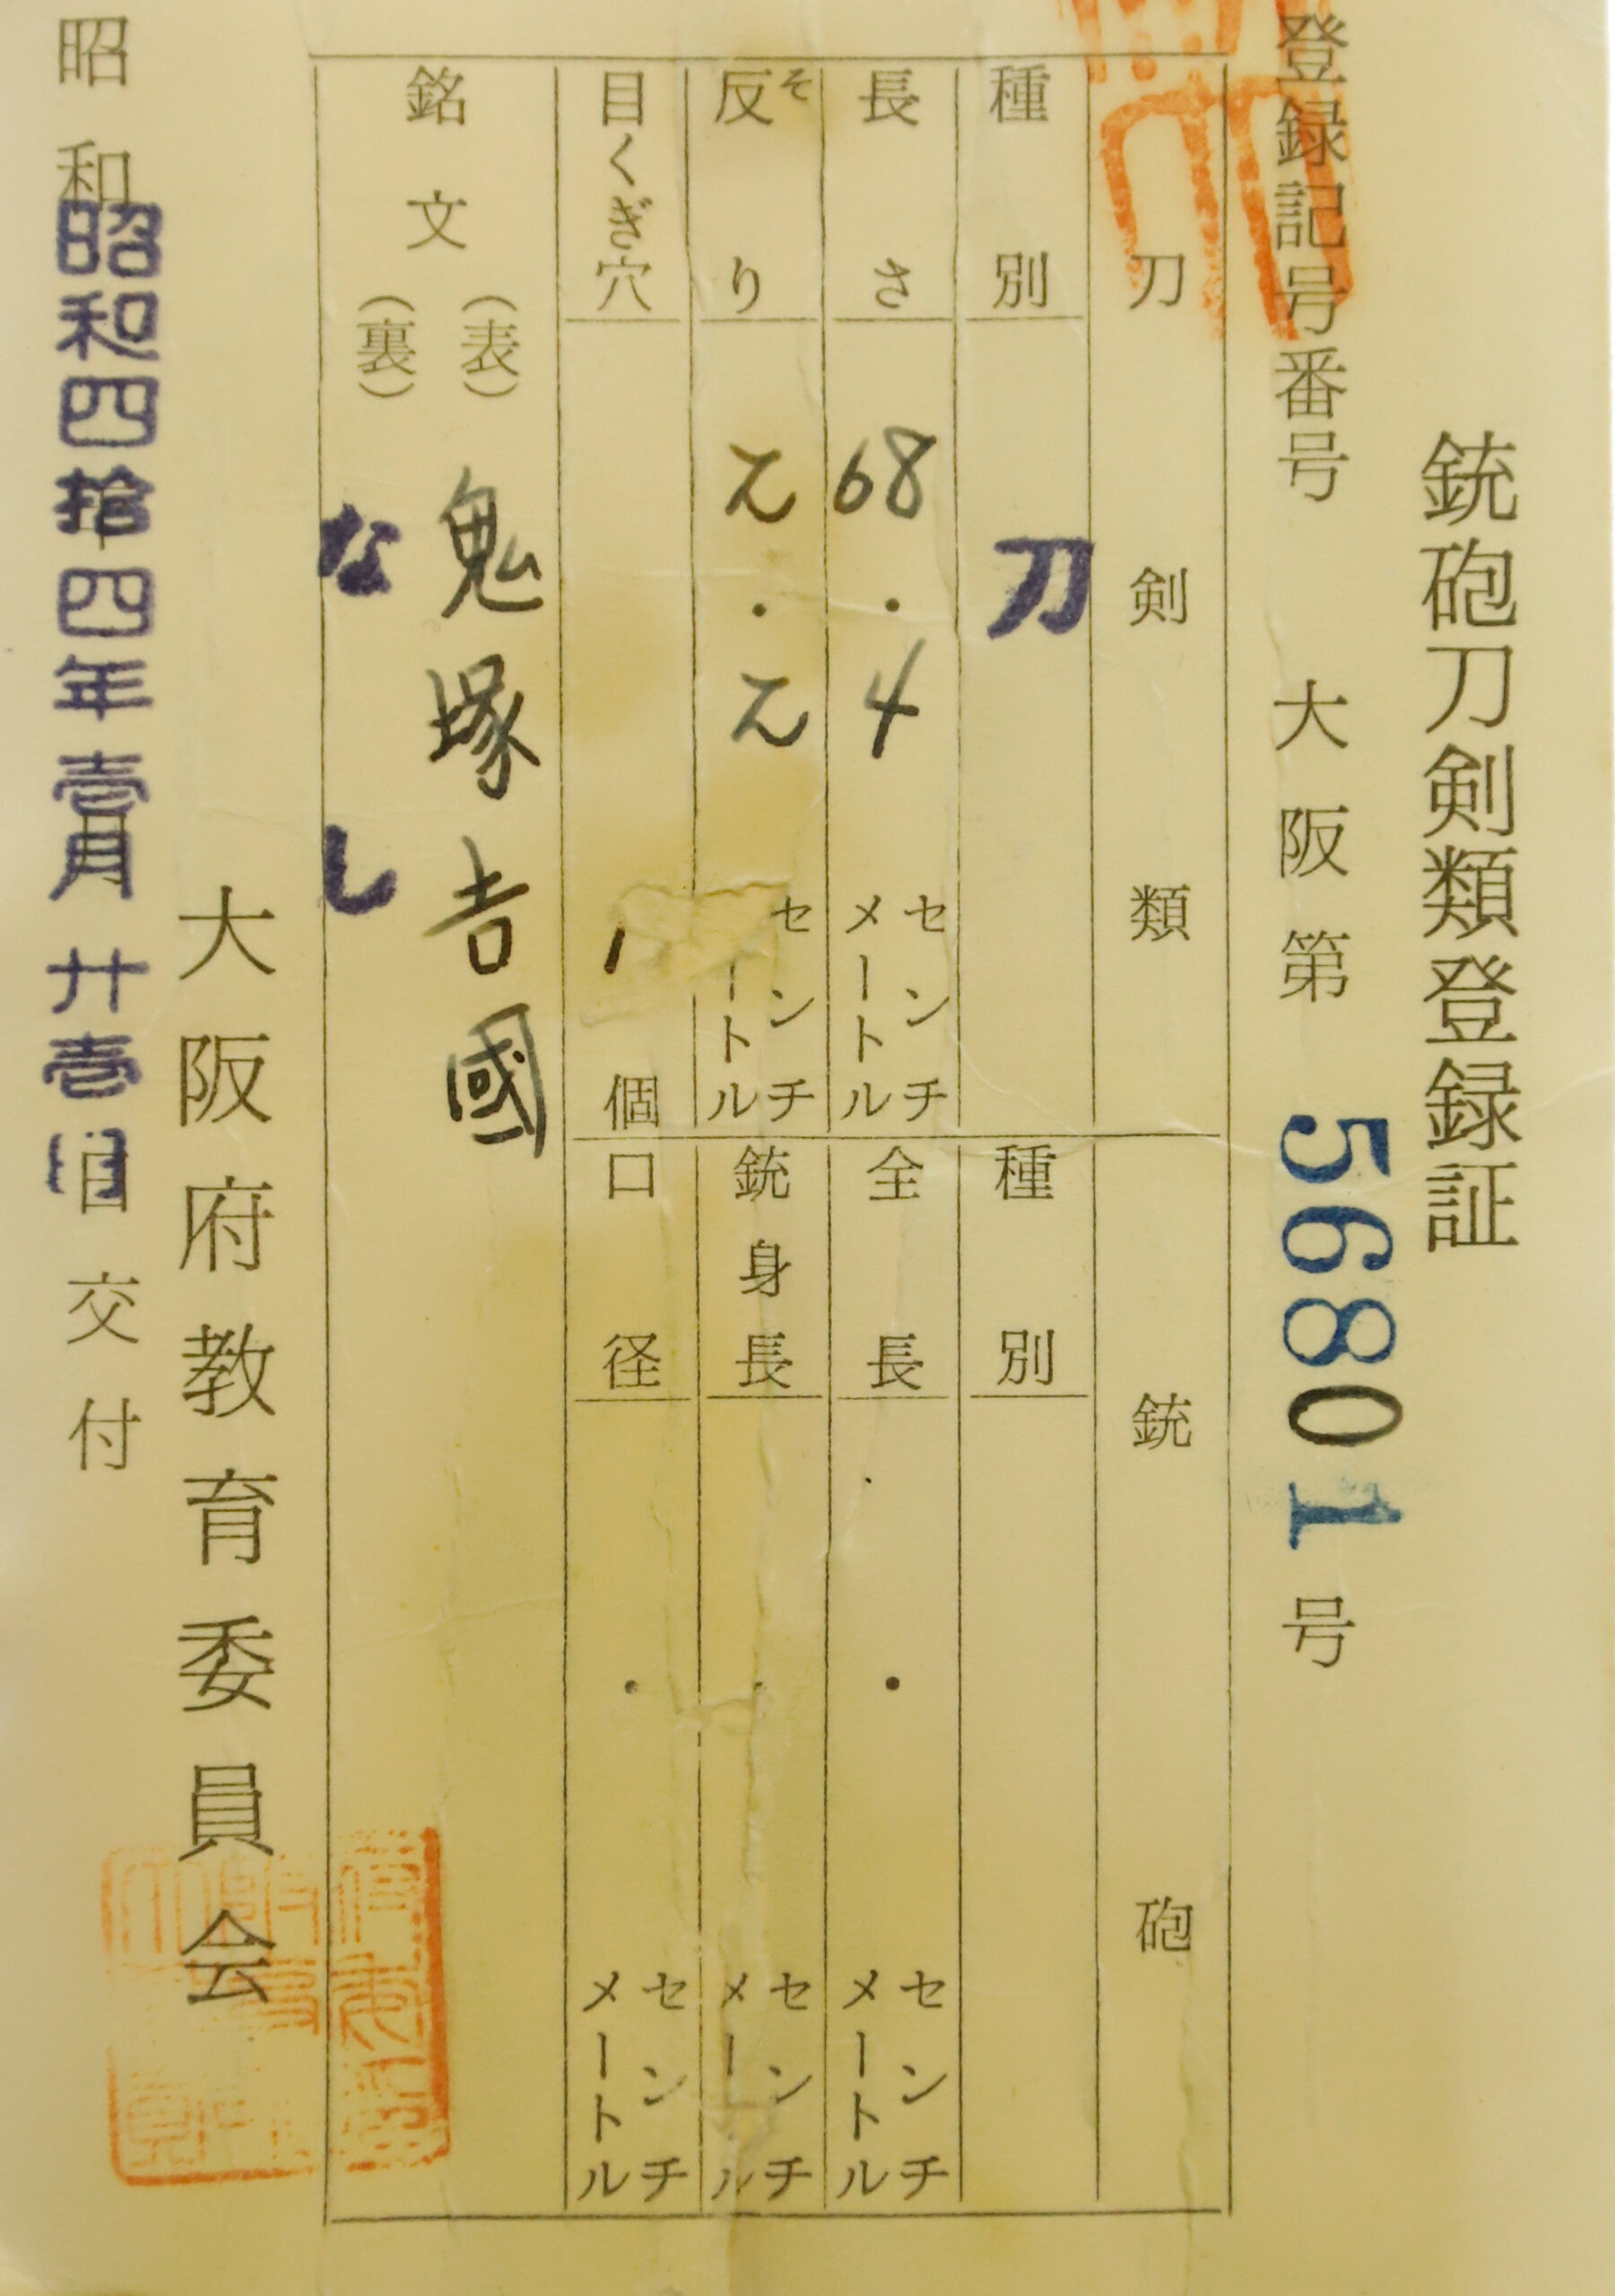 銃砲刀剣類登録証
登録記号番号 大阪第 56801 号
刀剣類
種別 刀
長さ 68.4 センチメートル
反り そ 2.2 センチメートル
目くぎ穴 1 個
銘文 (表) 鬼塚吉國
(裏) なし
銃砲
種別
全長 . センチメートル
銃身長 . センチメートル
口径 . センチメートル
大阪府教育委員会
昭和 昭和四拾四年壹月廿壱日交付